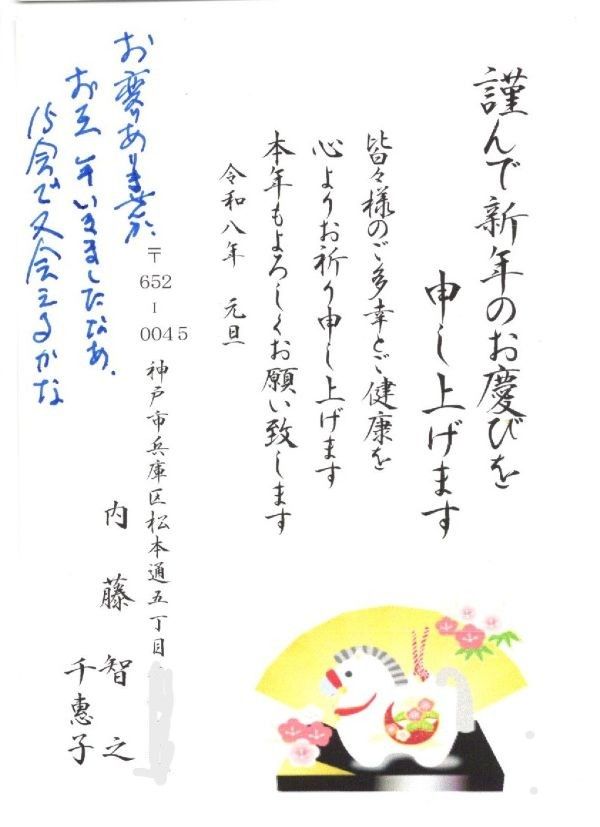 謹んで新年のお慶びを
申し上げます
皆々様のご多幸とご健康を
心よりお祈り申し上げます
本年もよろしくお願い致します
令和八年 元旦
〒652-0045 神戸市兵庫区松本通五丁目
内藤 智之
千惠子
お変りありませんか、
お互 年いきましたなあ.
会で又会えるかな